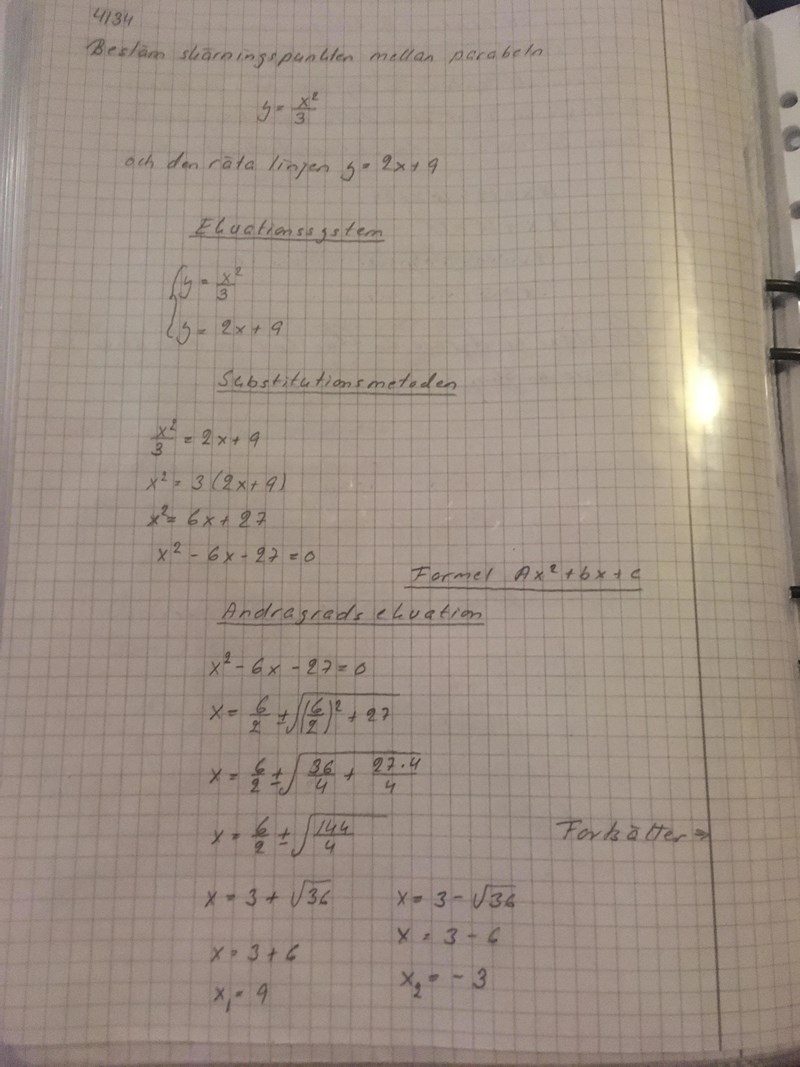 4134
Bestäm skärningspunkten mellan parabeln
y = x²/3
och den räta linjen y = 2x + 9
Ekvationssystem
{ y = x²/3
y = 2x + 9
Substitutionsmetoden
x²/3 = 2x + 9
x² = 3(2x + 9)
x² = 6x + 27
x² - 6x - 27 = 0
Formel Ax² + bx + c
Andragrads ekvation
x² - 6x - 27 = 0
x = 6/2 ± √((6/2)² + 27)
x = 6/2 ± √(36/4 + 27·4/4)
x = 6/2 ± √(144/4)
Fortsätter ⇒
x = 3 + √36 x = 3 - √36
x = 3 + 6 x = 3 - 6
x₁ = 9 x₂ = - 3